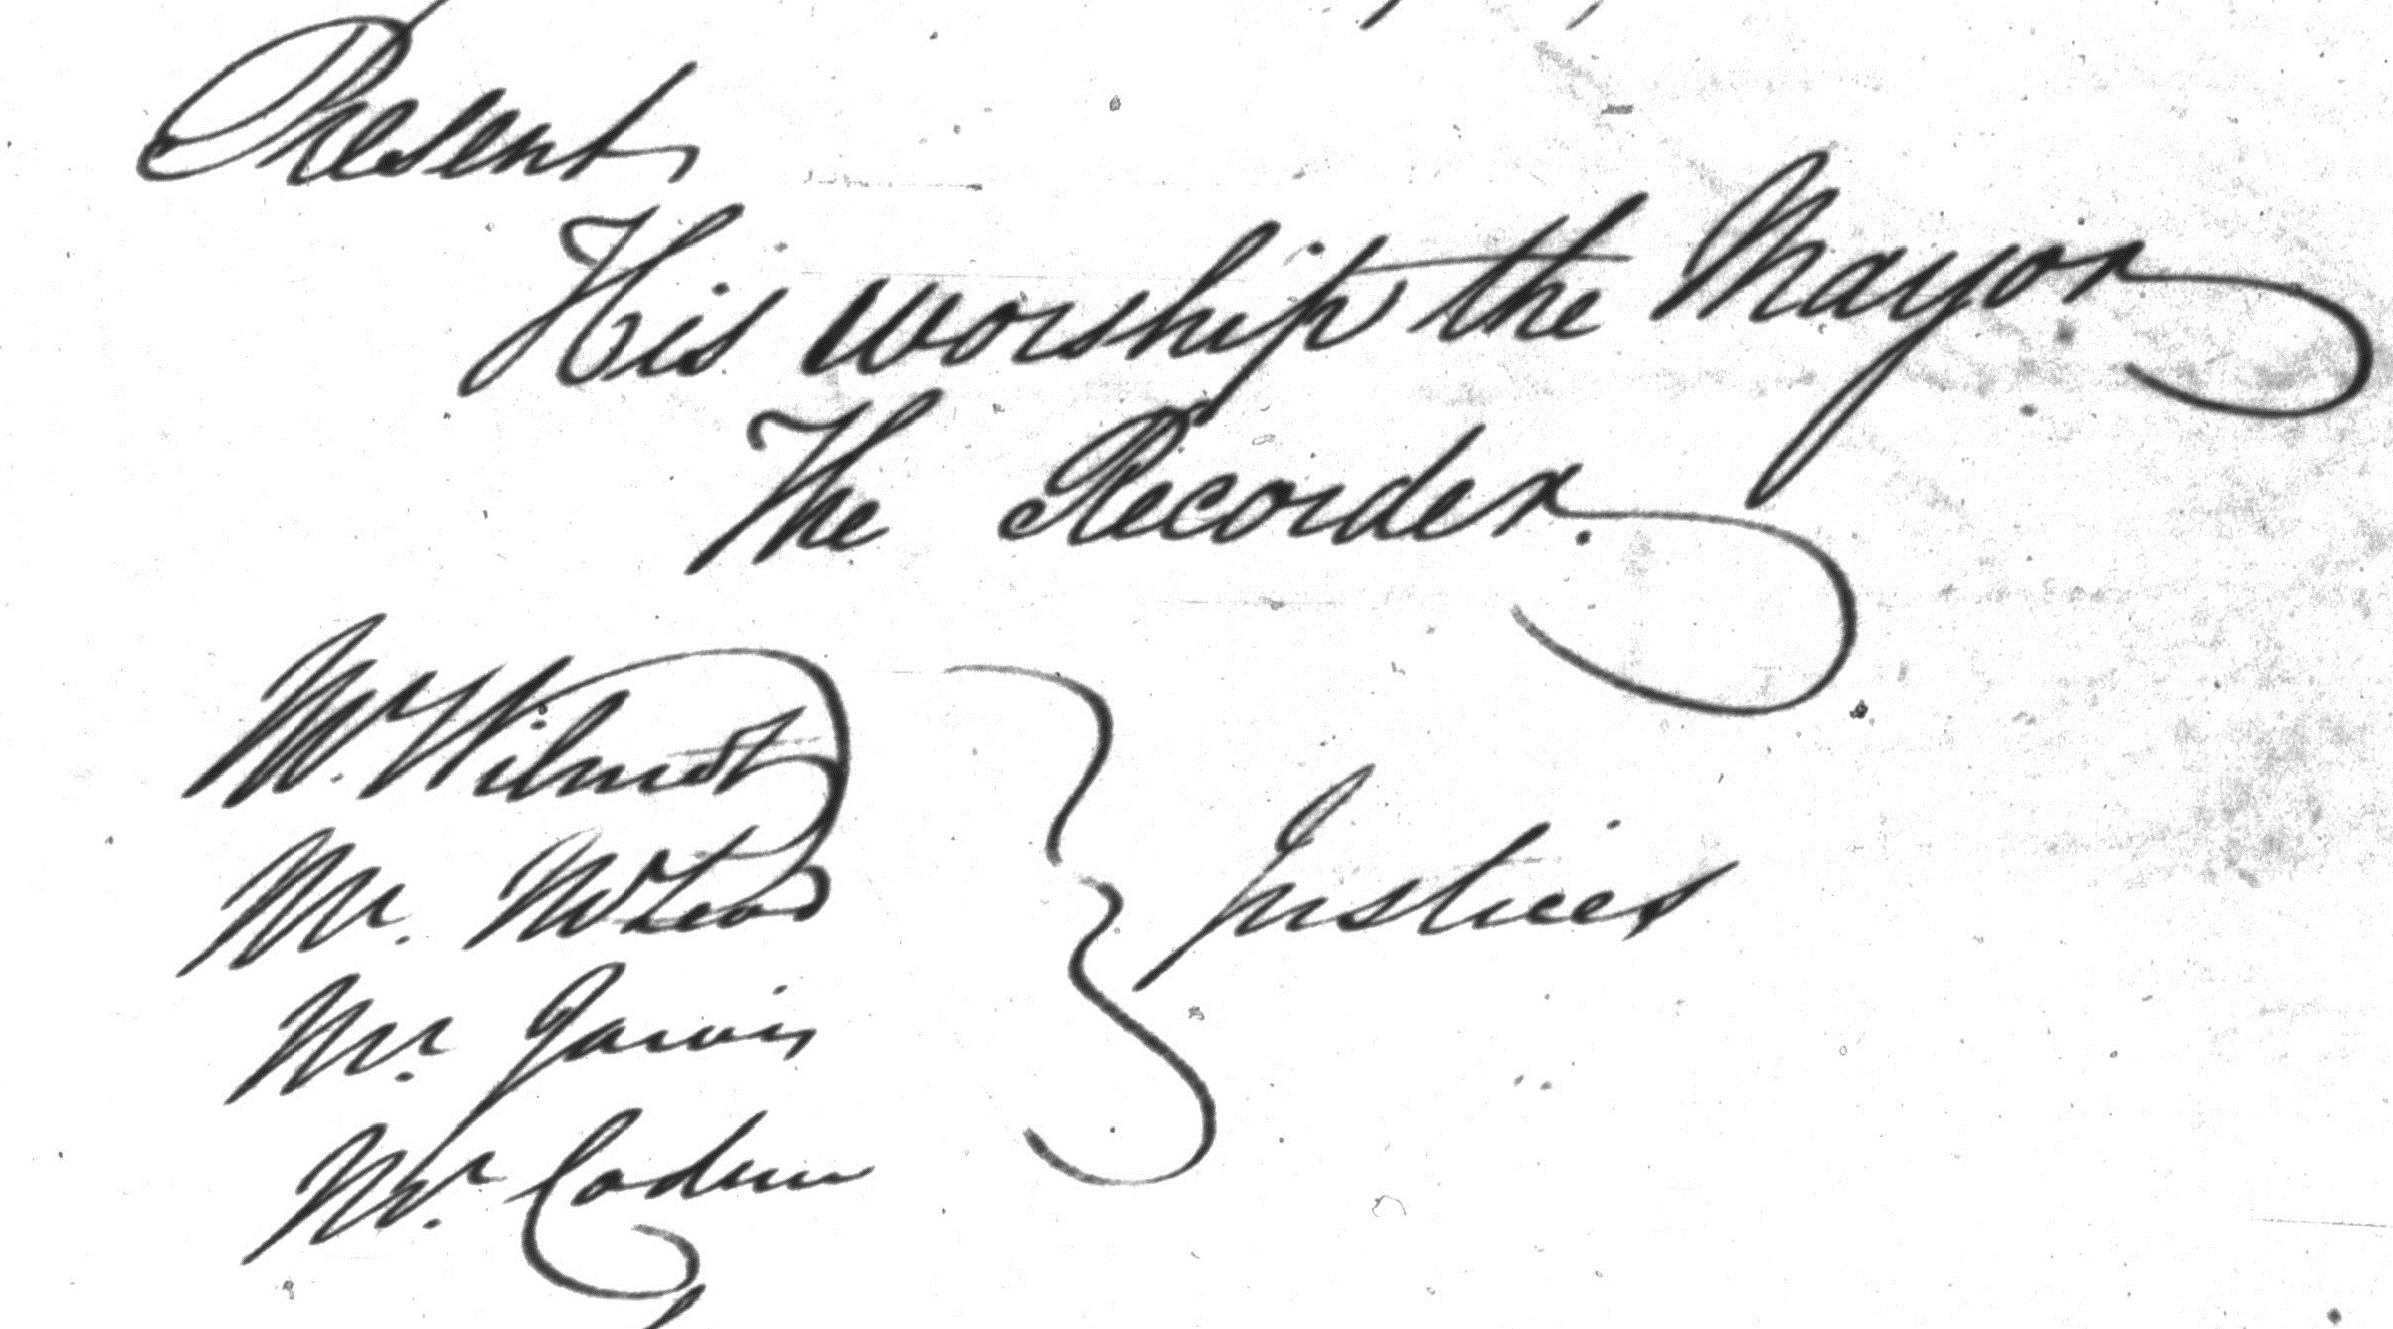 Present
His worship the Mayor
The Recorder.
Mr. Wilmot
Mr. McLeod
Justices
Mr. Jarvis
Mr.